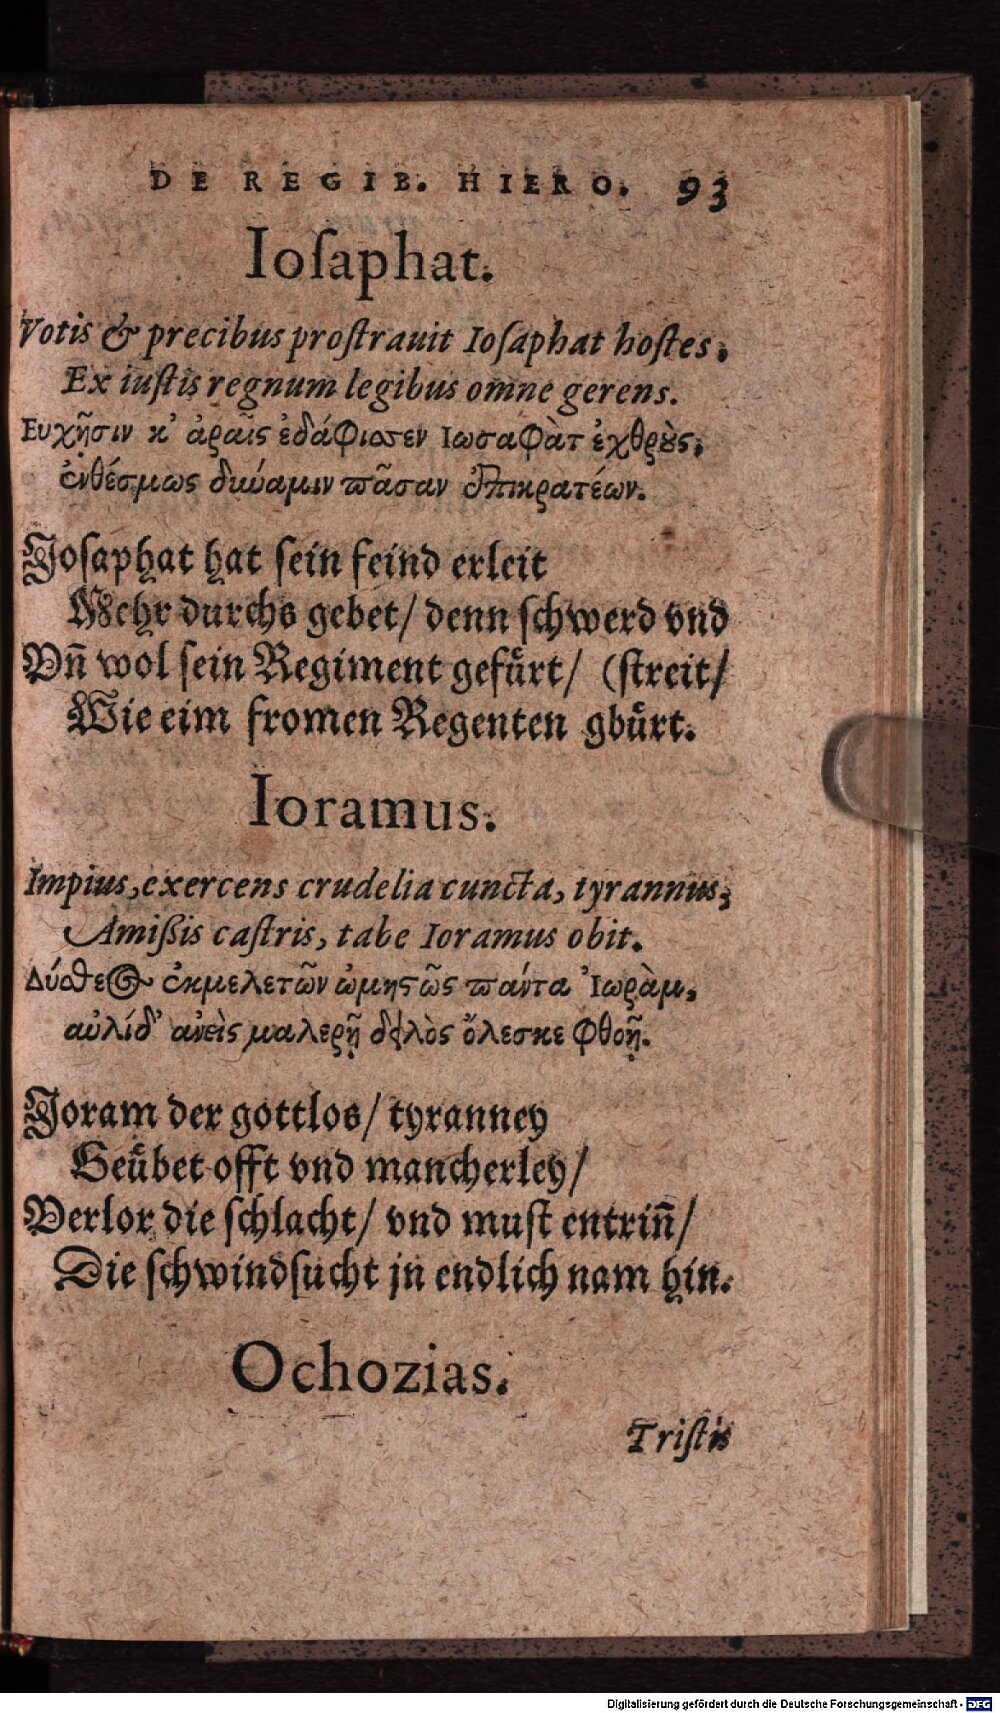 DE REGIB. HIERO. 93
Ioſaphat.
Votis & precibus proſtrauit Ioſaphat hoſtes,
Ex iuſtis regnum legibus omne gerens.
Ευχῇσιν κ' ἀραῖς ἐδάφισσεν Ιωσαφὰτ ἐχθρȣ̀ς,
ἐνθέσμως δύναμιν πᾶσαν ἐπικρατέων.
Joſaphat hat ſein feind erleit
Mehr durchs gebet/ denn ſchwerd vnd
Vn̄ wol ſein Regiment gefuͤrt/ (ſtreit/
Wie eim fromen Regenten gbuͤrt.
Ioramus.
Impius, exercens crudelia cuncta, tyrannus,
Amißis caſtris, tabe Ioramus obit.
Δύσθεος ἐκμελετῶν ὠμηςῶς πάντα Ἰωρὰμ,
αὐλίδ' μαλερῇ ὄλεσκε φθοῇ.
Joram der gottlos/ tyranney
Geuͤbet offt vnd mancherley/
Verlor die ſchlacht/ vnd muſt entrin̄/
Die ſchwindſucht jn endlich nam hin.
Ochozias.
Triſtis
Digitalisierung gefördert durch die Deutsche Forschungsgemeinschaft - DFG